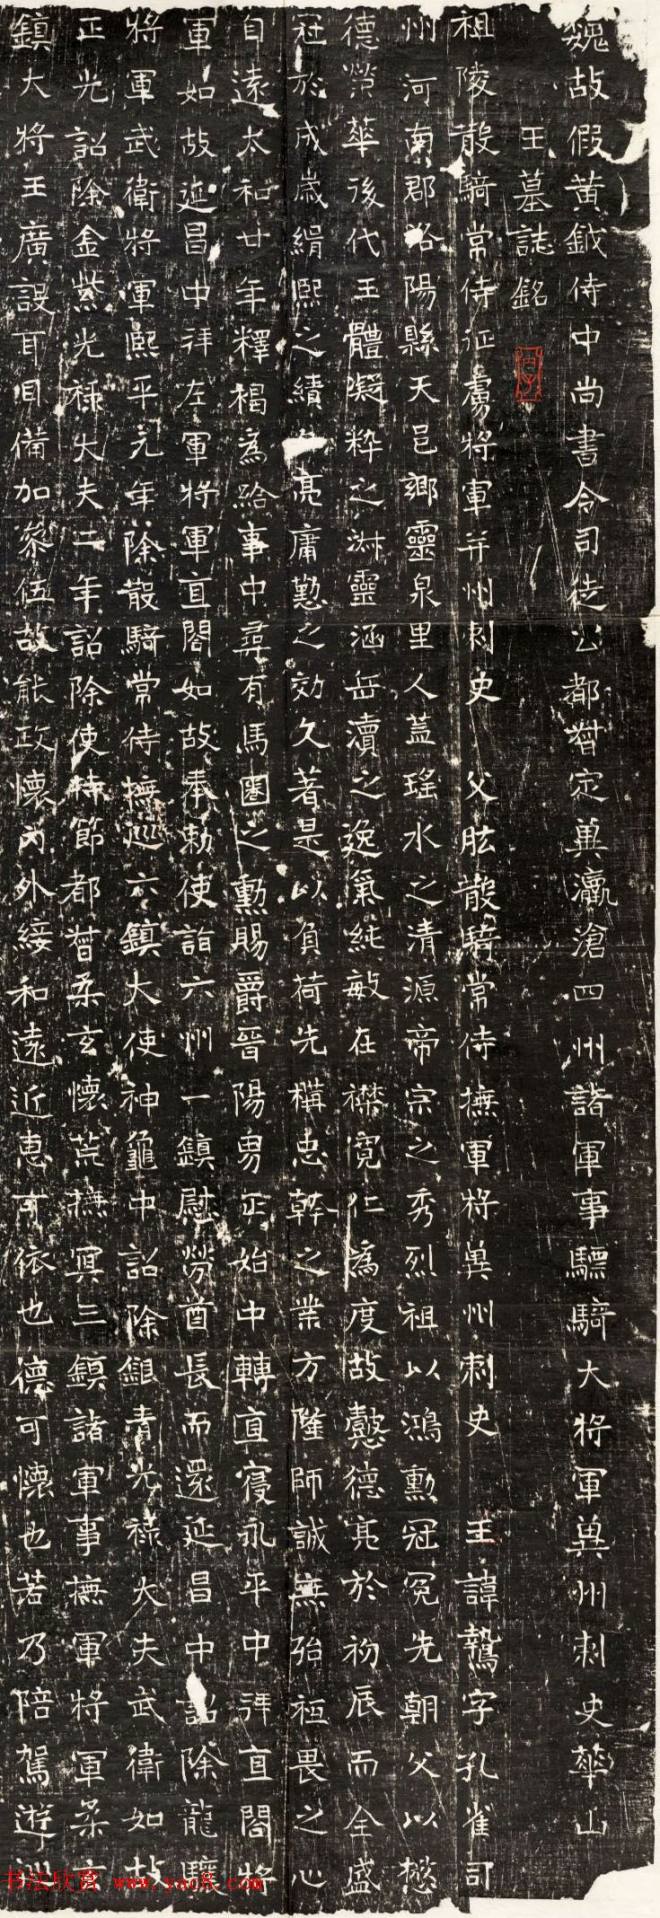 魏故假黄鉞侍中尚書令司徒公都督定兾瀛滄四州諸軍事驃騎大将軍兾州刺史華山
王墓誌銘
祖陵散騎常侍征虜將軍并州刺史 父肱散騎常侍撫軍将兾州刺史 王諱鷙字孔雀司
州河南郡洛陽縣天邑鄉靈泉里人蓋瑤水之清源帝宗之秀烈祖以鴻勳冠冕先朝父以懋
德榮華後代王體凝粹之淋靈涵岳瀆之逸氣純敏在襟寬仁為度故懿德亮於初辰而全盛
冠於成歲緝熙之績亮庸懃之効久著是以負荷先構忠幹之業方隆師誠無殆袒畏之心
自遠太和廿年釋褐為給事中尋有馬圈之勳賜爵晉陽男正始中轉直寢永平中拜直閤將
軍如故延昌中拜左軍將軍直閤如故奉勅使詣六州一鎮慰勞酋長而還延昌中詔除龍驤
將軍武衛將軍熙平元年除散騎常侍撫巡六鎮大使神龜中詔除銀青光祿大夫武衛如故
正光詔除金紫光祿大夫二年詔除使持節都督柔玄懷荒撫冥三鎮諸軍事撫軍將軍柔
鎮大将王廣設耳目備加參伍故能政懷內外綏和遠近惠可依也德可懷也若乃陪駕遊
书法欣赏 www.yac8.com